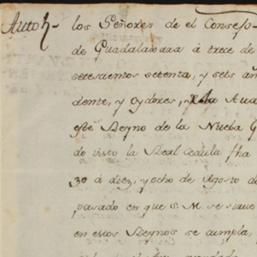 Auto
los Señores de el Consejo
de Guadalaxara á trece de
setesientos setenta, y seis añ
dente, y Oydores, de la Aua
este Reyno de la Nueva G
do visto la Real Cedula fha
30 á diez, y ocho de Agosto d
pasado en que S. M. se sirve
en estos Reynos se cumpla,